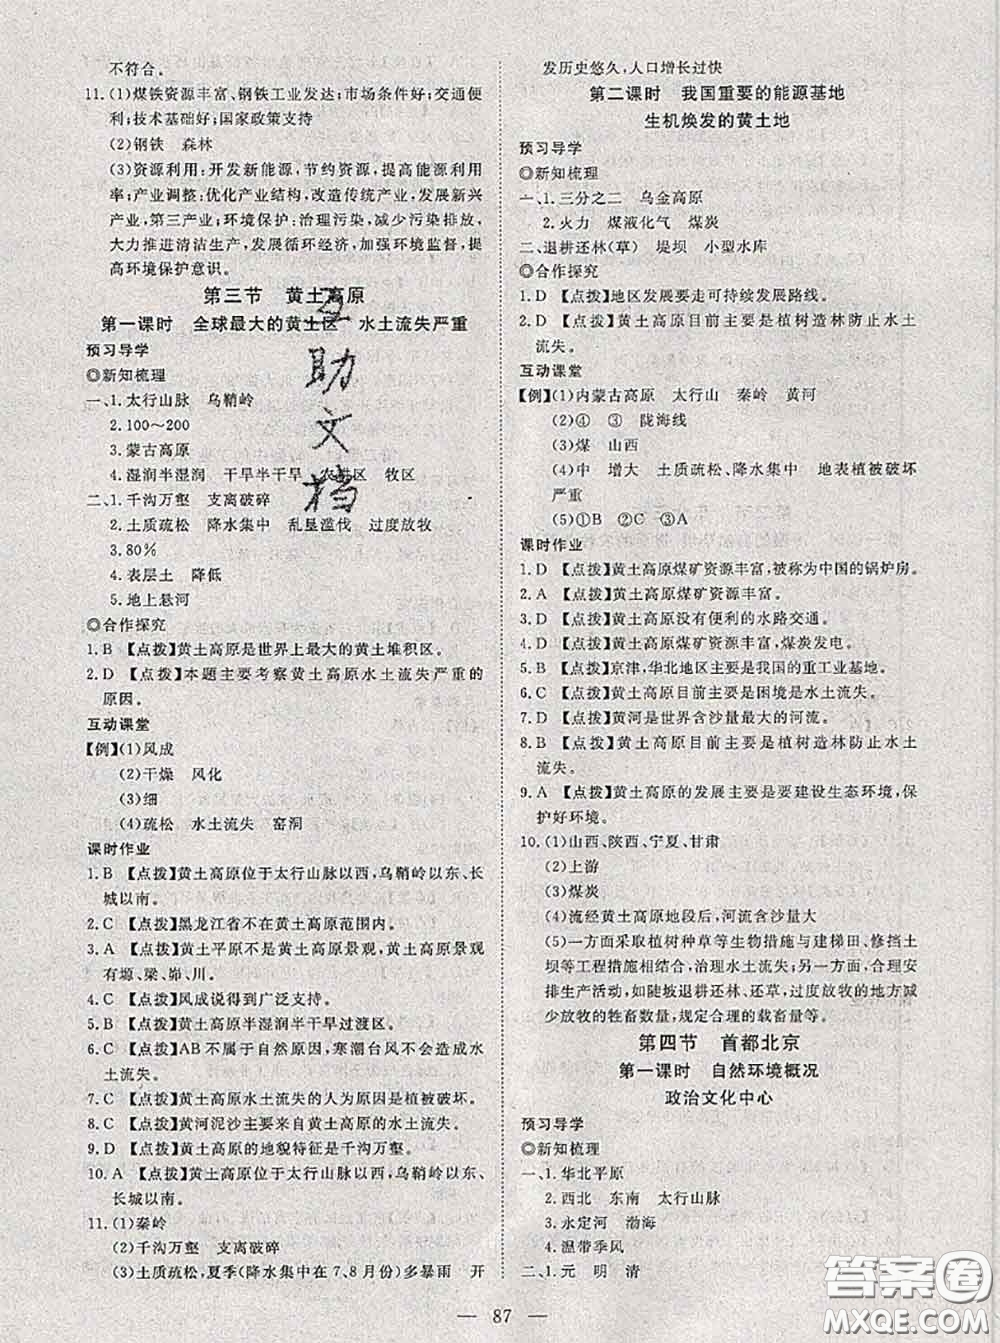 不符合。
11.(1)煤铁资源丰富、钢铁工业发达;市场条件好;交通便
利;技术基础好;国家政策支持
(2)钢铁 森林
(3)资源利用:开发新能源,节约资源,提高资源利用
率;产业调整:优化产业结构,改造传统产业,发展新兴
产业,第三产业;环境保护:治理污染,减少污染排放,
大力推进清洁生产,发展循环经济,加强环境监督,提
高环境保护意识。
第三节 黄土高原
第一课时 全球最大的黄土区 水土流失严重
预习导学
◎新知梳理
一、1.太行山脉 乌鞘岭
2.100～200
3.蒙古高原
4.湿润半湿润 干旱半干旱 农耕区 牧区
二、1.千沟万壑 支离破碎
2.土质疏松 降水集中 乱垦滥伐 过度放牧
3.80%
4.表层土 降低
5.地上悬河
◎合作探究
1.B 【点拨】黄土高原是世界上最大的黄土堆积区。
2.D 【点拨】本题主要考察黄土高原水土流失严重的
原因。
互动课堂
【例】(1)风成
(2)干燥 风化
(3)细
(4)疏松 水土流失 窑洞
课时作业
1.B 【点拨】黄土高原位于太行山脉以西,乌鞘岭以东、长
城以南。
2.C 【点拨】黑龙江省不在黄土高原范围内。
3.A 【点拨】黄土平原不是黄土高原景观,黄土高原景观
有塬、梁、峁、川。
4.C 【点拨】风成说得到广泛支持。
5.B 【点拨】黄土高原半湿润半干旱过渡区。
6.C 【点拨】AB不属于自然原因,寒潮台风不会造成水
土流失。
7.C 【点拨】黄土高原水土流失的人为原因是植被破坏。
8.B 【点拨】黄河泥沙主要来自黄土高原。
9.D 【点拨】黄土高原的地貌特征是千沟万壑。
10.A 【点拨】黄土高原位于太行山脉以西,乌鞘岭以东、
长城以南。
11.(1)秦岭
(2)千沟万壑 支离破碎
(3)土质疏松,夏季(降水集中在7、8月份)多暴雨 开
发历史悠久,人口增长过快
第二课时 我国重要的能源基地
生机焕发的黄土地
预习导学
◎新知梳理
一、1.三分之二 乌金高原
2.火力 煤液化气 煤炭
二、退耕还林(草) 堤坝 小型水库
◎合作探究
1.D 【点拨】地区发展要走可持续发展路线。
2.D 【点拨】黄土高原目前主要是植树造林防止水土
流失。
互动课堂
【例】(1)内蒙古高原 太行山 秦岭 黄河
(2)④ ③ 陇海线
(3)煤 山西
(4)中 增大 土质疏松、降水集中 地表植被破坏
严重
(5)①B ②C ③A
课时作业
1.D 【点拨】黄土高原煤矿资源丰富,被称为中国的锅炉房。
2.A 【点拨】黄土高原煤矿资源丰富。
3.D 【点拨】黄土高原没有便利的水路交通。
4.D 【点拨】黄土高原煤矿资源丰富,煤炭发电。
5.B 【点拨】京津,华北地区主要是我国的重工业基地。
6.C 【点拨】黄土高原目前主要是困境是水土流失。
7.D 【点拨】黄河是世界含沙量最大的河流。
8.B 【点拨】黄土高原目前主要是植树造林防止水土
流失。
9.A 【点拨】黄土高原的发展主要是要建设生态环境,保
护好环境。
10.(1)山西、陕西、宁夏、甘肃
(2)上游
(3)煤炭
(4)流经黄土高原地段后,河流含沙量大
(5)一方面采取植树种草等生物措施与建梯田、修挡土
坝等工程措施相结合,治理水土流失;另一方面,合理安
排生产活动,如陡坡退耕还林、还草,过度放牧的地方减
少放牧的牲畜数量,规定合理的载畜量等。
第四节 首都北京
第一课时 自然环境概况
政治文化中心
预习导学
◎新知梳理
一、1.华北平原
2.西北 东南 太行山脉
3.永定河 渤海
4.温带季风
二、1.元 明 清
— 87 —
互助文档
答案圈
MXQE.COM